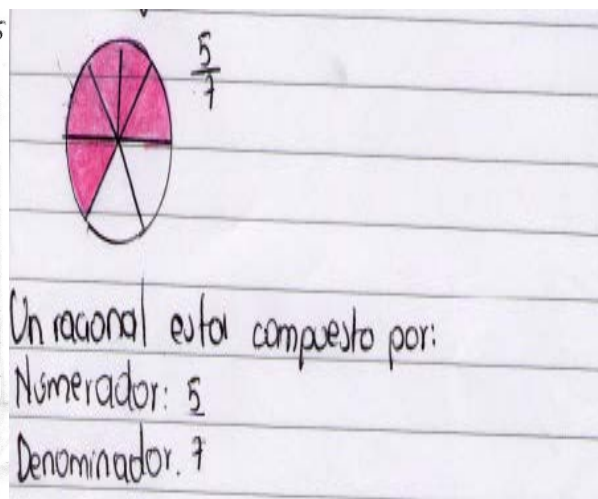 5/7
Un racional esta compuesto por:
Númerador: 5
Denominador. 7